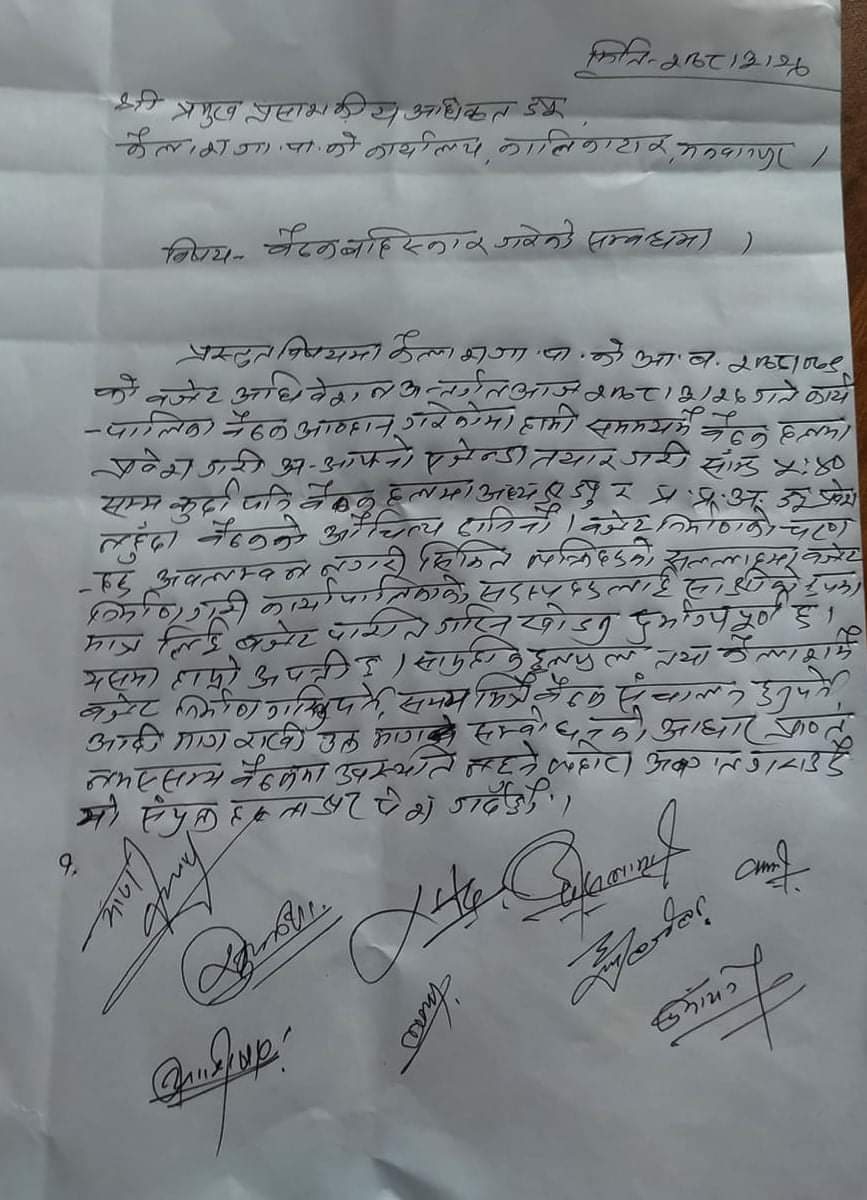 मिति- २०७८।३।२६
श्री प्रमुख प्रसाशकीय अधिकृत ज्यू,
कैलाश गा.पा.को कार्यालय, कालिकाटार, मकवानपुर ।
विषय- बैठक बहिस्कार गरेको सम्बन्धमा ।
प्रस्तुत विषयमा कैलाश गा.पा. को आ.ब. २०७८।०७९
को बजेट अधिवेशन अन्तर्गत आज २०७८।३।२६ गते कार्य
-पालिका बैठक आव्हान गरेकोमा हामी समयमै बैठक हलमा
प्रवेश गरी अ-आफ्नो एजेन्डा तयार गरी साँझ ५:४०
सम्म कुर्दा पनि बैठक हलमा अध्यक्ष ज्यु र प्र.प्र.अ. ज्यू प्रवेश
नहुँदा बैठकको औचित्य देखिनौ । बजेट निर्माणको चरण
-हरु अवलम्बन नगरी सिमित व्यक्तिहरुको सल्लाहमा बजेट
निर्माण गरी कार्यपालिकाको सदस्यहरुलाई साक्षीको रुपमा
मात्र लिई बजेट पारित गरिन खोज्नु दुर्भाग्यपूर्ण छ ।
यसमा हाम्रो आपत्ती छ । सामुहिक छलफल तथा कैलाशमै
बजेट निर्माण गरिनुपर्ने, समय भित्रै बैठक संचालन हुनुपर्ने,
आदी माग राखी उक्त मागको सम्बोधनको आधार प्राप्त
नभएसम्म बैठकमा उपस्थिति नहुने ब्यहोरा अवगत गराउँदै
यो संयुक्त हस्ताक्षर पेश गर्दछौं ।
१.